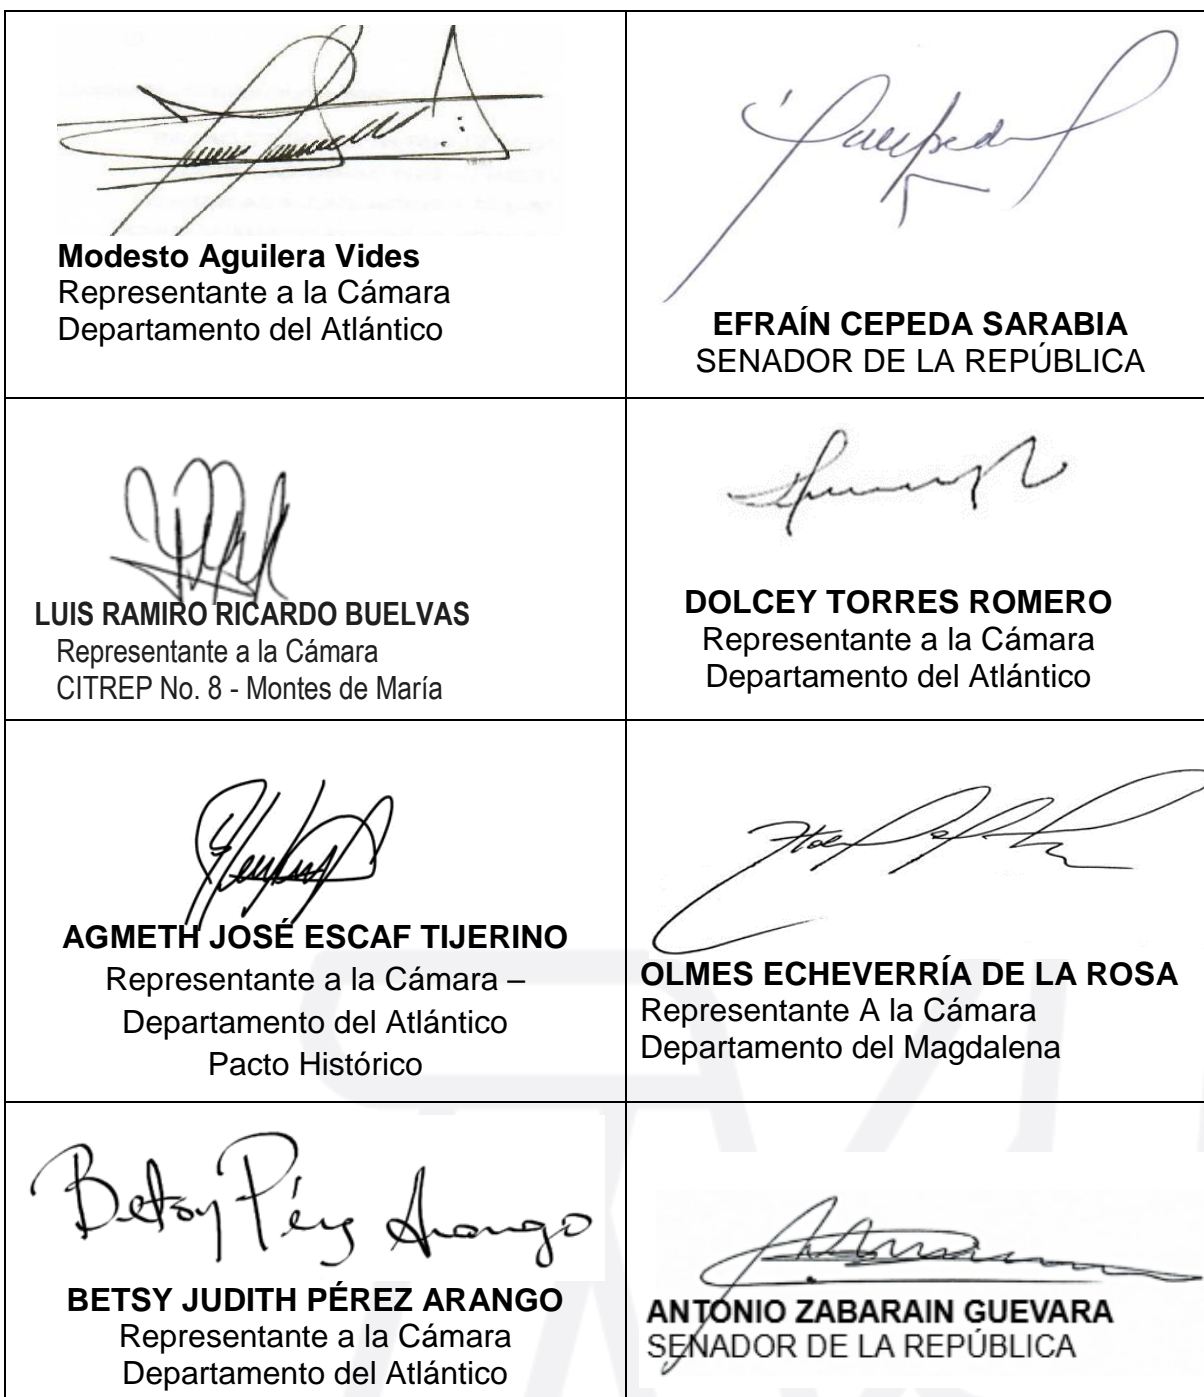 Modesto Aguilera Vides
Representante a la Cámara
Departamento del Atlántico
EFRAÍN CEPEDA SARABIA
SENADOR DE LA REPÚBLICA
LUIS RAMIRO RICARDO BUELVAS
Representante a la Cámara
CITREP No. 8 - Montes de María
DOLCEY TORRES ROMERO
Representante a la Cámara
Departamento del Atlántico
AGMETH JOSÉ ESCAF TIJERINO
Representante a la Cámara –
Departamento del Atlántico
Pacto Histórico
OLMES ECHEVERRÍA DE LA ROSA
Representante A la Cámara
Departamento del Magdalena
Betsy Pérez Arango
BETSY JUDITH PÉREZ ARANGO
Representante a la Cámara
Departamento del Atlántico
ANTONIO ZABARAIN GUEVARA
SENADOR DE LA REPÚBLICA